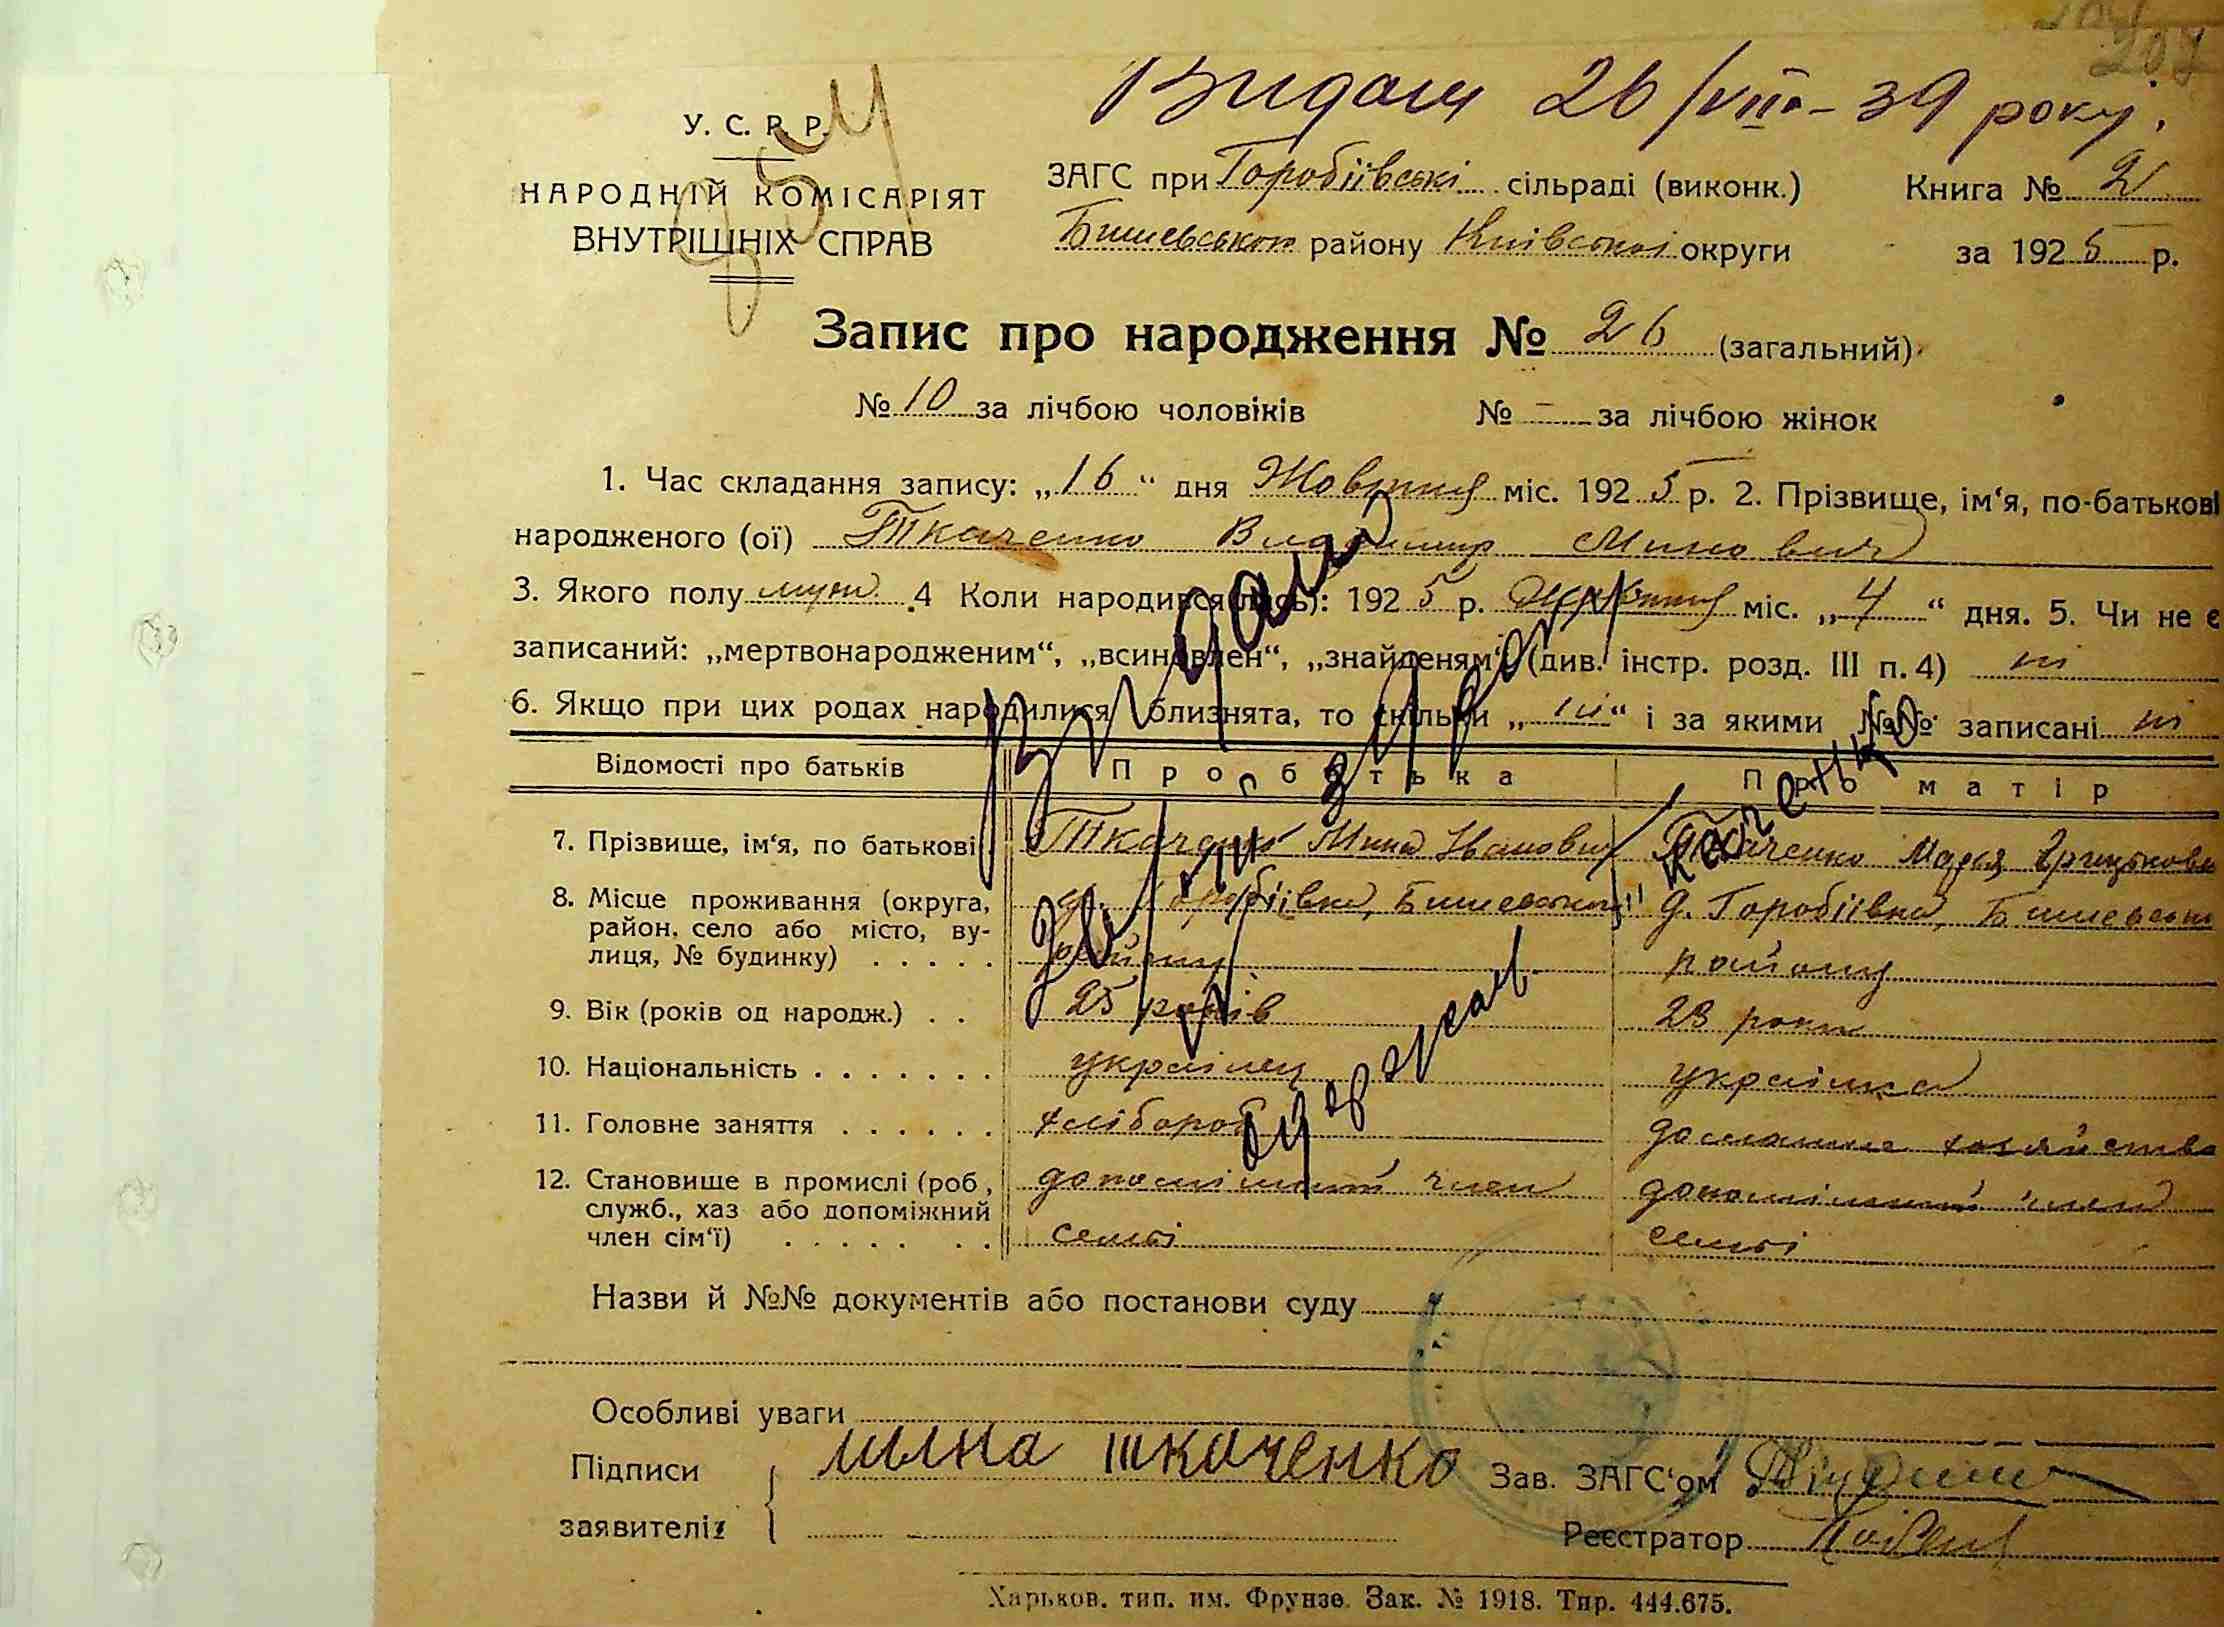 Видані 26/VIII - 39 року.
У. С. Р. Р.
НАРОДНІЙ КОМІСАРІЯТ
ВНУТРІШНІХ СПРАВ
ЗАГС при Горобіївські сільраді (виконк.) Книга № 2
Бишевського району Київської округи за 1925 р.
Запис про народження № 26 (загальний)
№ 10 за лічбою чоловіків № - за лічбою жінок
1. Час складання запису: „16“ дня Жовтня міс. 1925 р. 2. Прізвище, ім‘я, по-батькові
народженого (ої) Ткаченко Владимир Минович
3. Якого полу муж. 4 Коли народився (лась): 1925 р. Жовтня міс. „4“ дня. 5. Чи не є
записаний: „мертвонародженим“, „всиновлен“, „знайденям“ (див. інстр. розд. III п. 4) ні
6. Якщо при цих родах народилися близнята, то скільки „ні“ і за якими №№ записані ні
Відомості про батьків Про батька Про матір
7. Прізвище, ім‘я, по батькові Ткаченко Мина Іванович Ткаченко Марья
8. Місце проживання (округа, д. Горобіївка, Бишевського д. Горобіївка, Бишевського
район, село або місто, ву-
лиця, № будинку) . . . . . району району
9. Вік (років од народж.) . . 25 років 23 роки
10. Національність . . . . . . . українец українка
11. Головне заняття . . . . . . хлібороб домашнє хозяйство
12. Становище в промислі (роб, допоміжний член допоміжний член
служб., хаз або допоміжний
член сім‘ї) . . . . . . . семьі семьі
Назви й №№ документів або постанови суду
Особливі уваги
Підписи мина ткаченко Зав. ЗАГС‘ом
заявителів Реєстратор
Харьков. тип. им. Фрунзе. Зак. № 1918. Тир. 444.675.